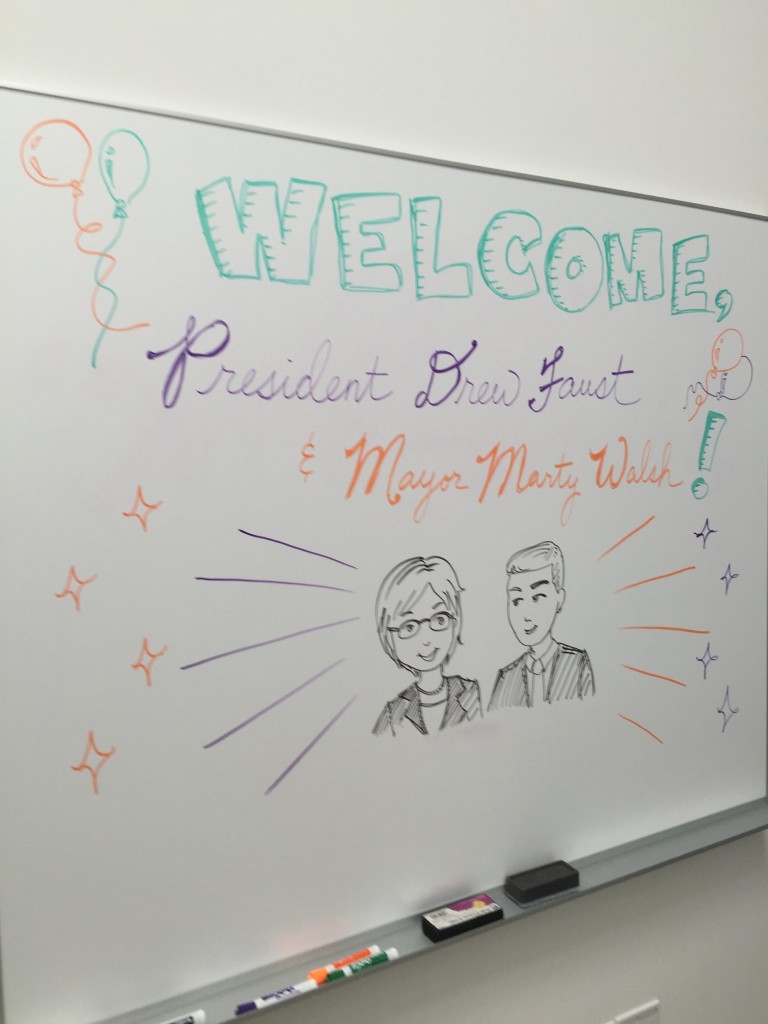 WELCOME,
President Drew Faust
& Mayor Marty Walsh!